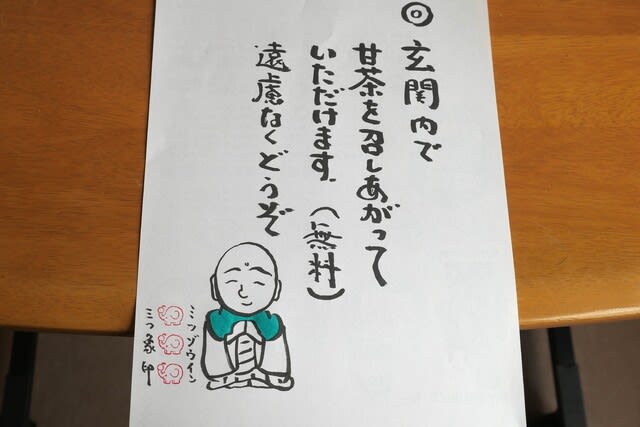 ◎玄関内で
甘茶を召しあがって
いただけます。(無料)
遠慮なくどうぞ
ミツゾウイン
三つ象印